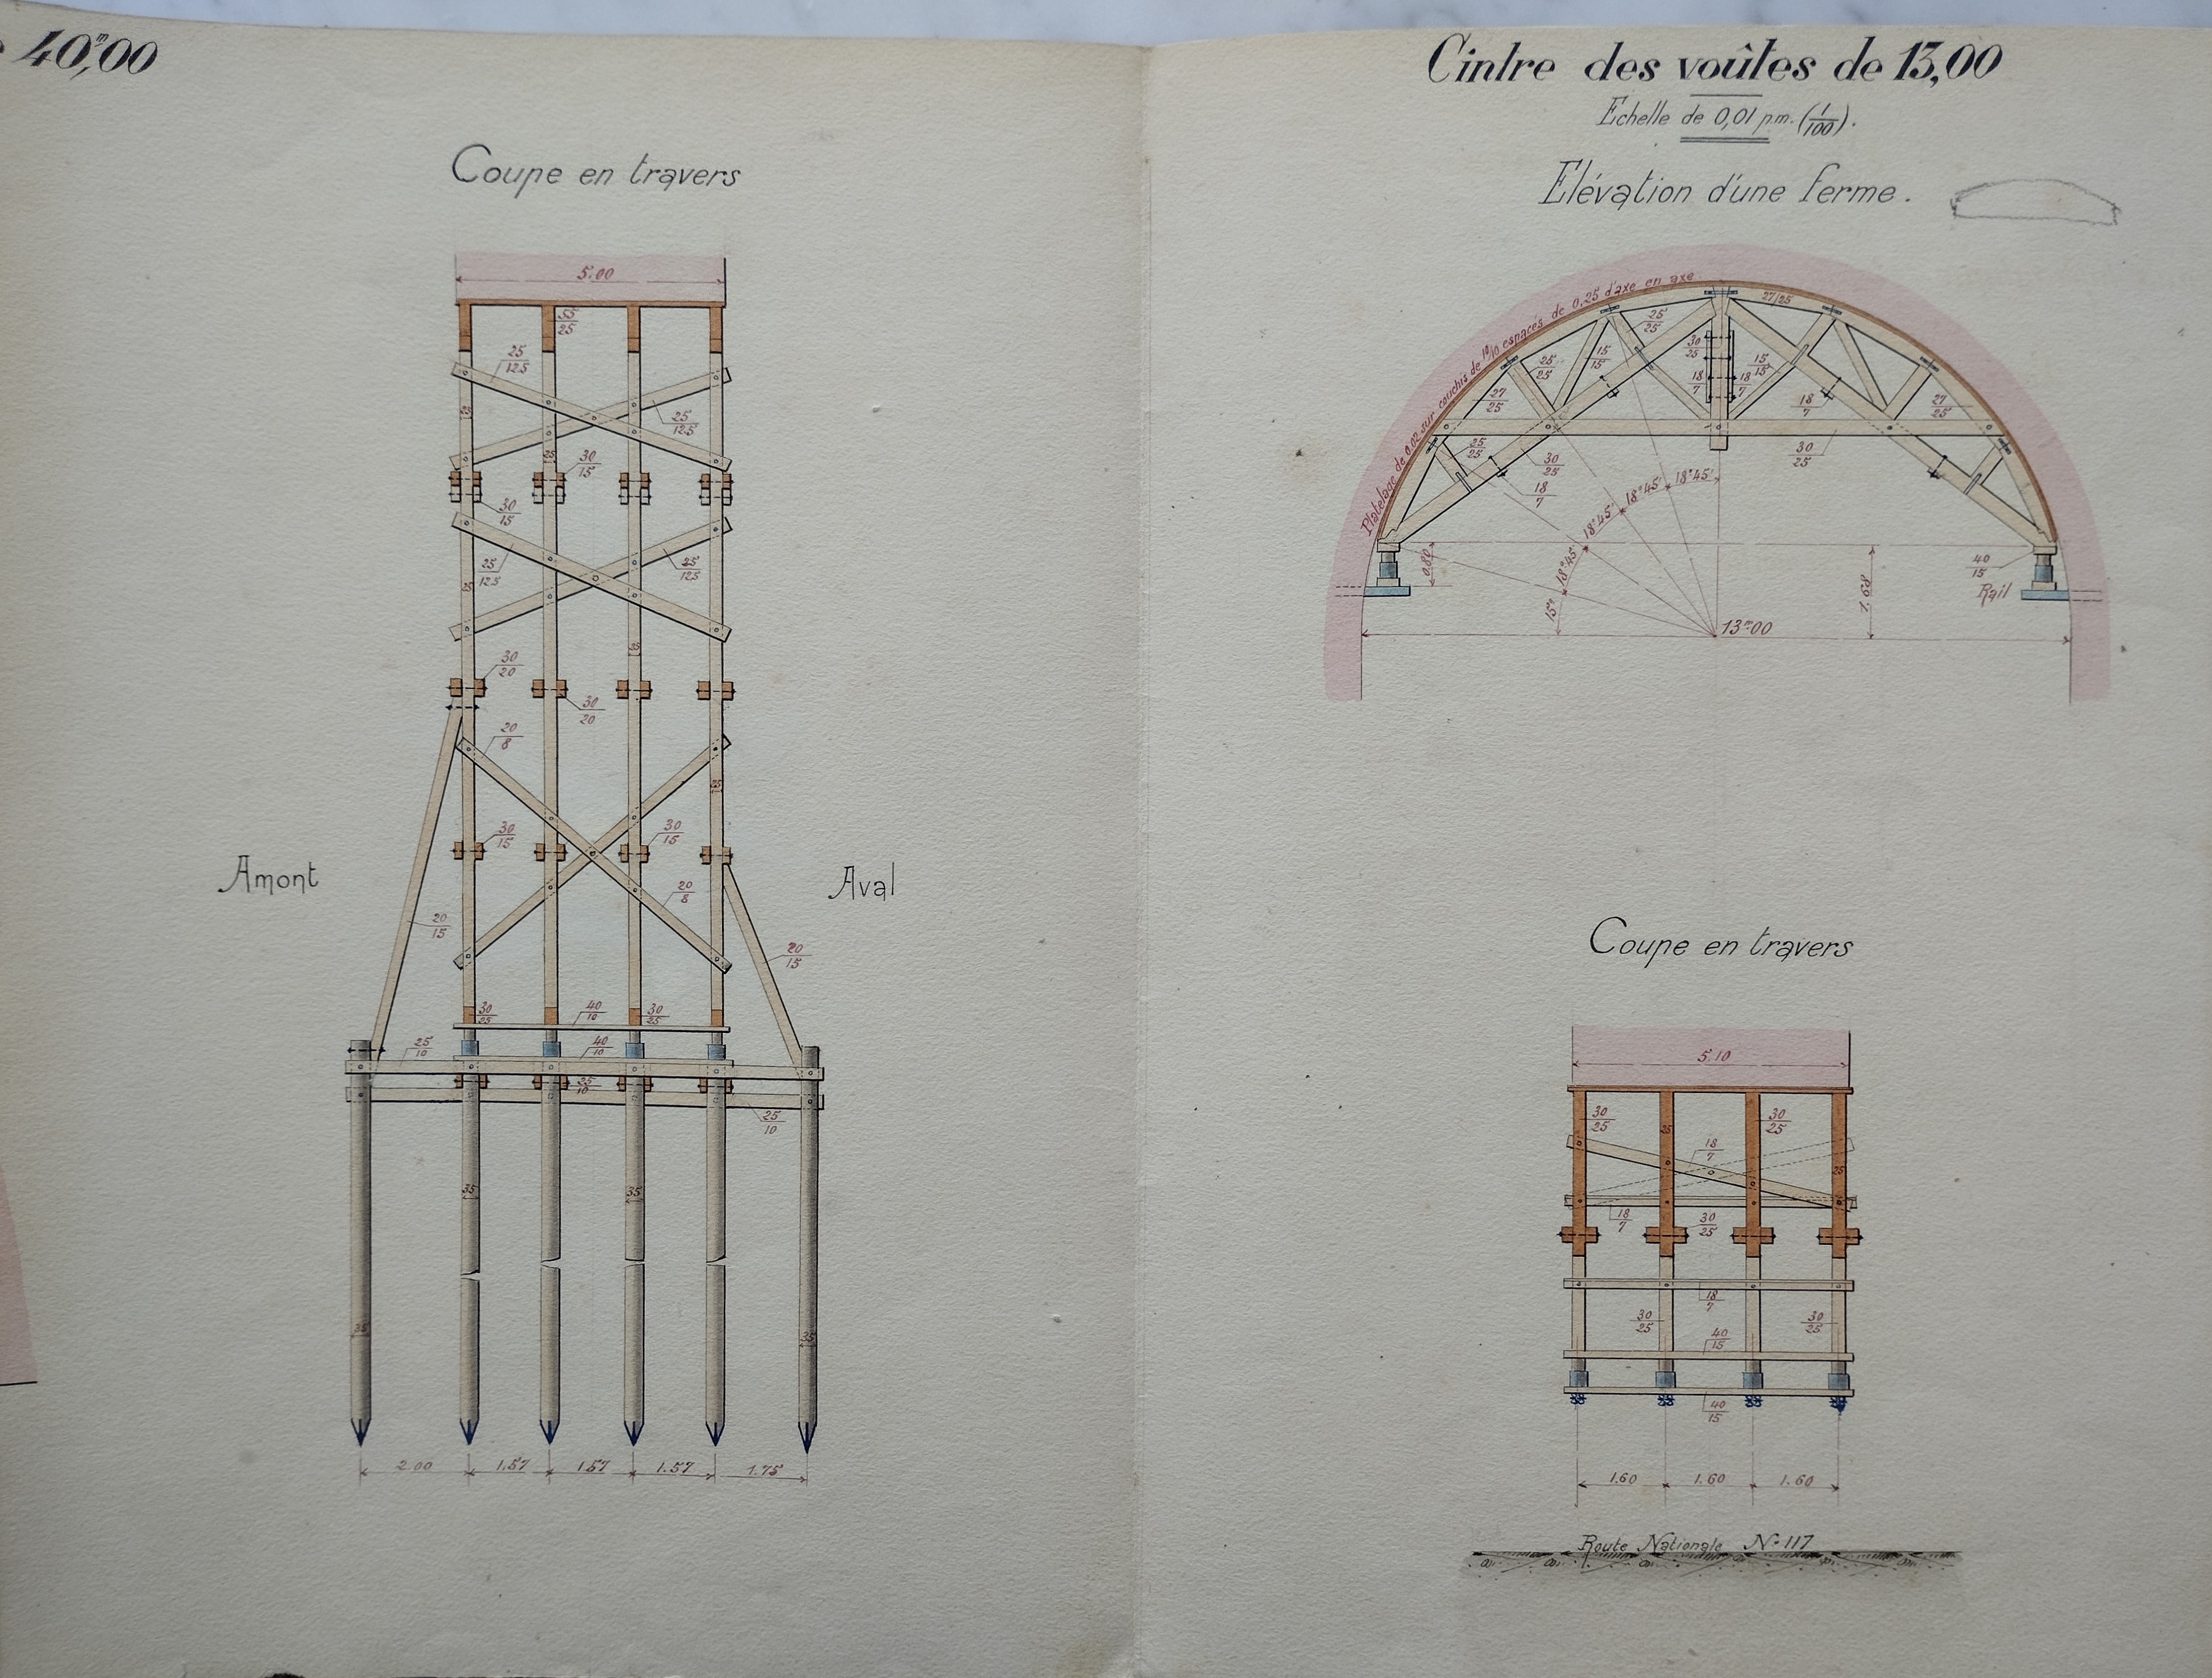 40,ᵐ00
Coupe en travers
5.00
55/25
25/12.5
25/12.5
25
25
30/15
30/15
25/12.5
25/12.5
25
25
30/20
30/20
20/8
25
30/15
30/15
20/8
Amont
Aval
20/15
20/15
30/25
40/10
30/25
25/10
40/10
25/10
25/10
35
35
35
35
2.00 1.57 1.57 1.57 1.75
Cintre des voûtes de 13,00
Echelle de 0,01 p.m. (1/100).
Elévation d'une ferme.
Platelage de 0,02 sur couchis de 10/10 espacés de 0,25 d'axe en axe
27/25
25/25
30/25
15/15
15/15
25/25
18/7
18/7
27/25
18/7
27/25
25/25
30/25
30/25
18/7
18°45' 18°45' 18°45' 18°45'
15°
0.80
1.68
40/15
Rail
13ᵐ00
Coupe en travers
5.10
30/25
30/25
25
18/7
25
18/7
30/25
18/7
30/25
30/25
40/15
40/15
1.60 1.60 1.60
Route Nationale Nº 117